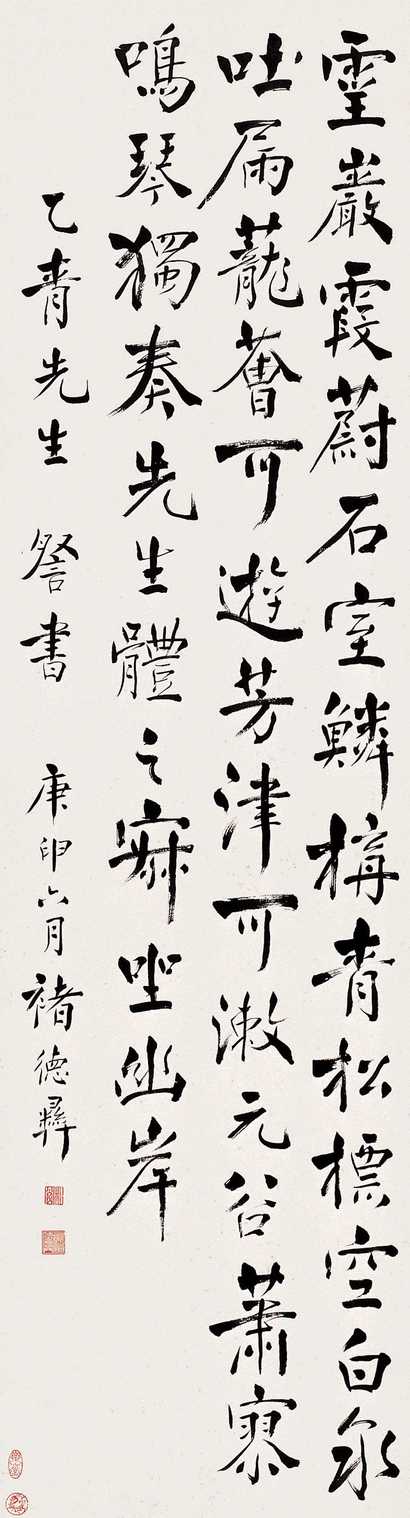 靈巖霞蔚石室鱗構青松標空白泉
吐屚蘢薈可遊芳津可漱元谷蕭寥
鳴琴獨奏先生體之寂坐幽岸
乙青先生 詧書 庚申六月褚德彝